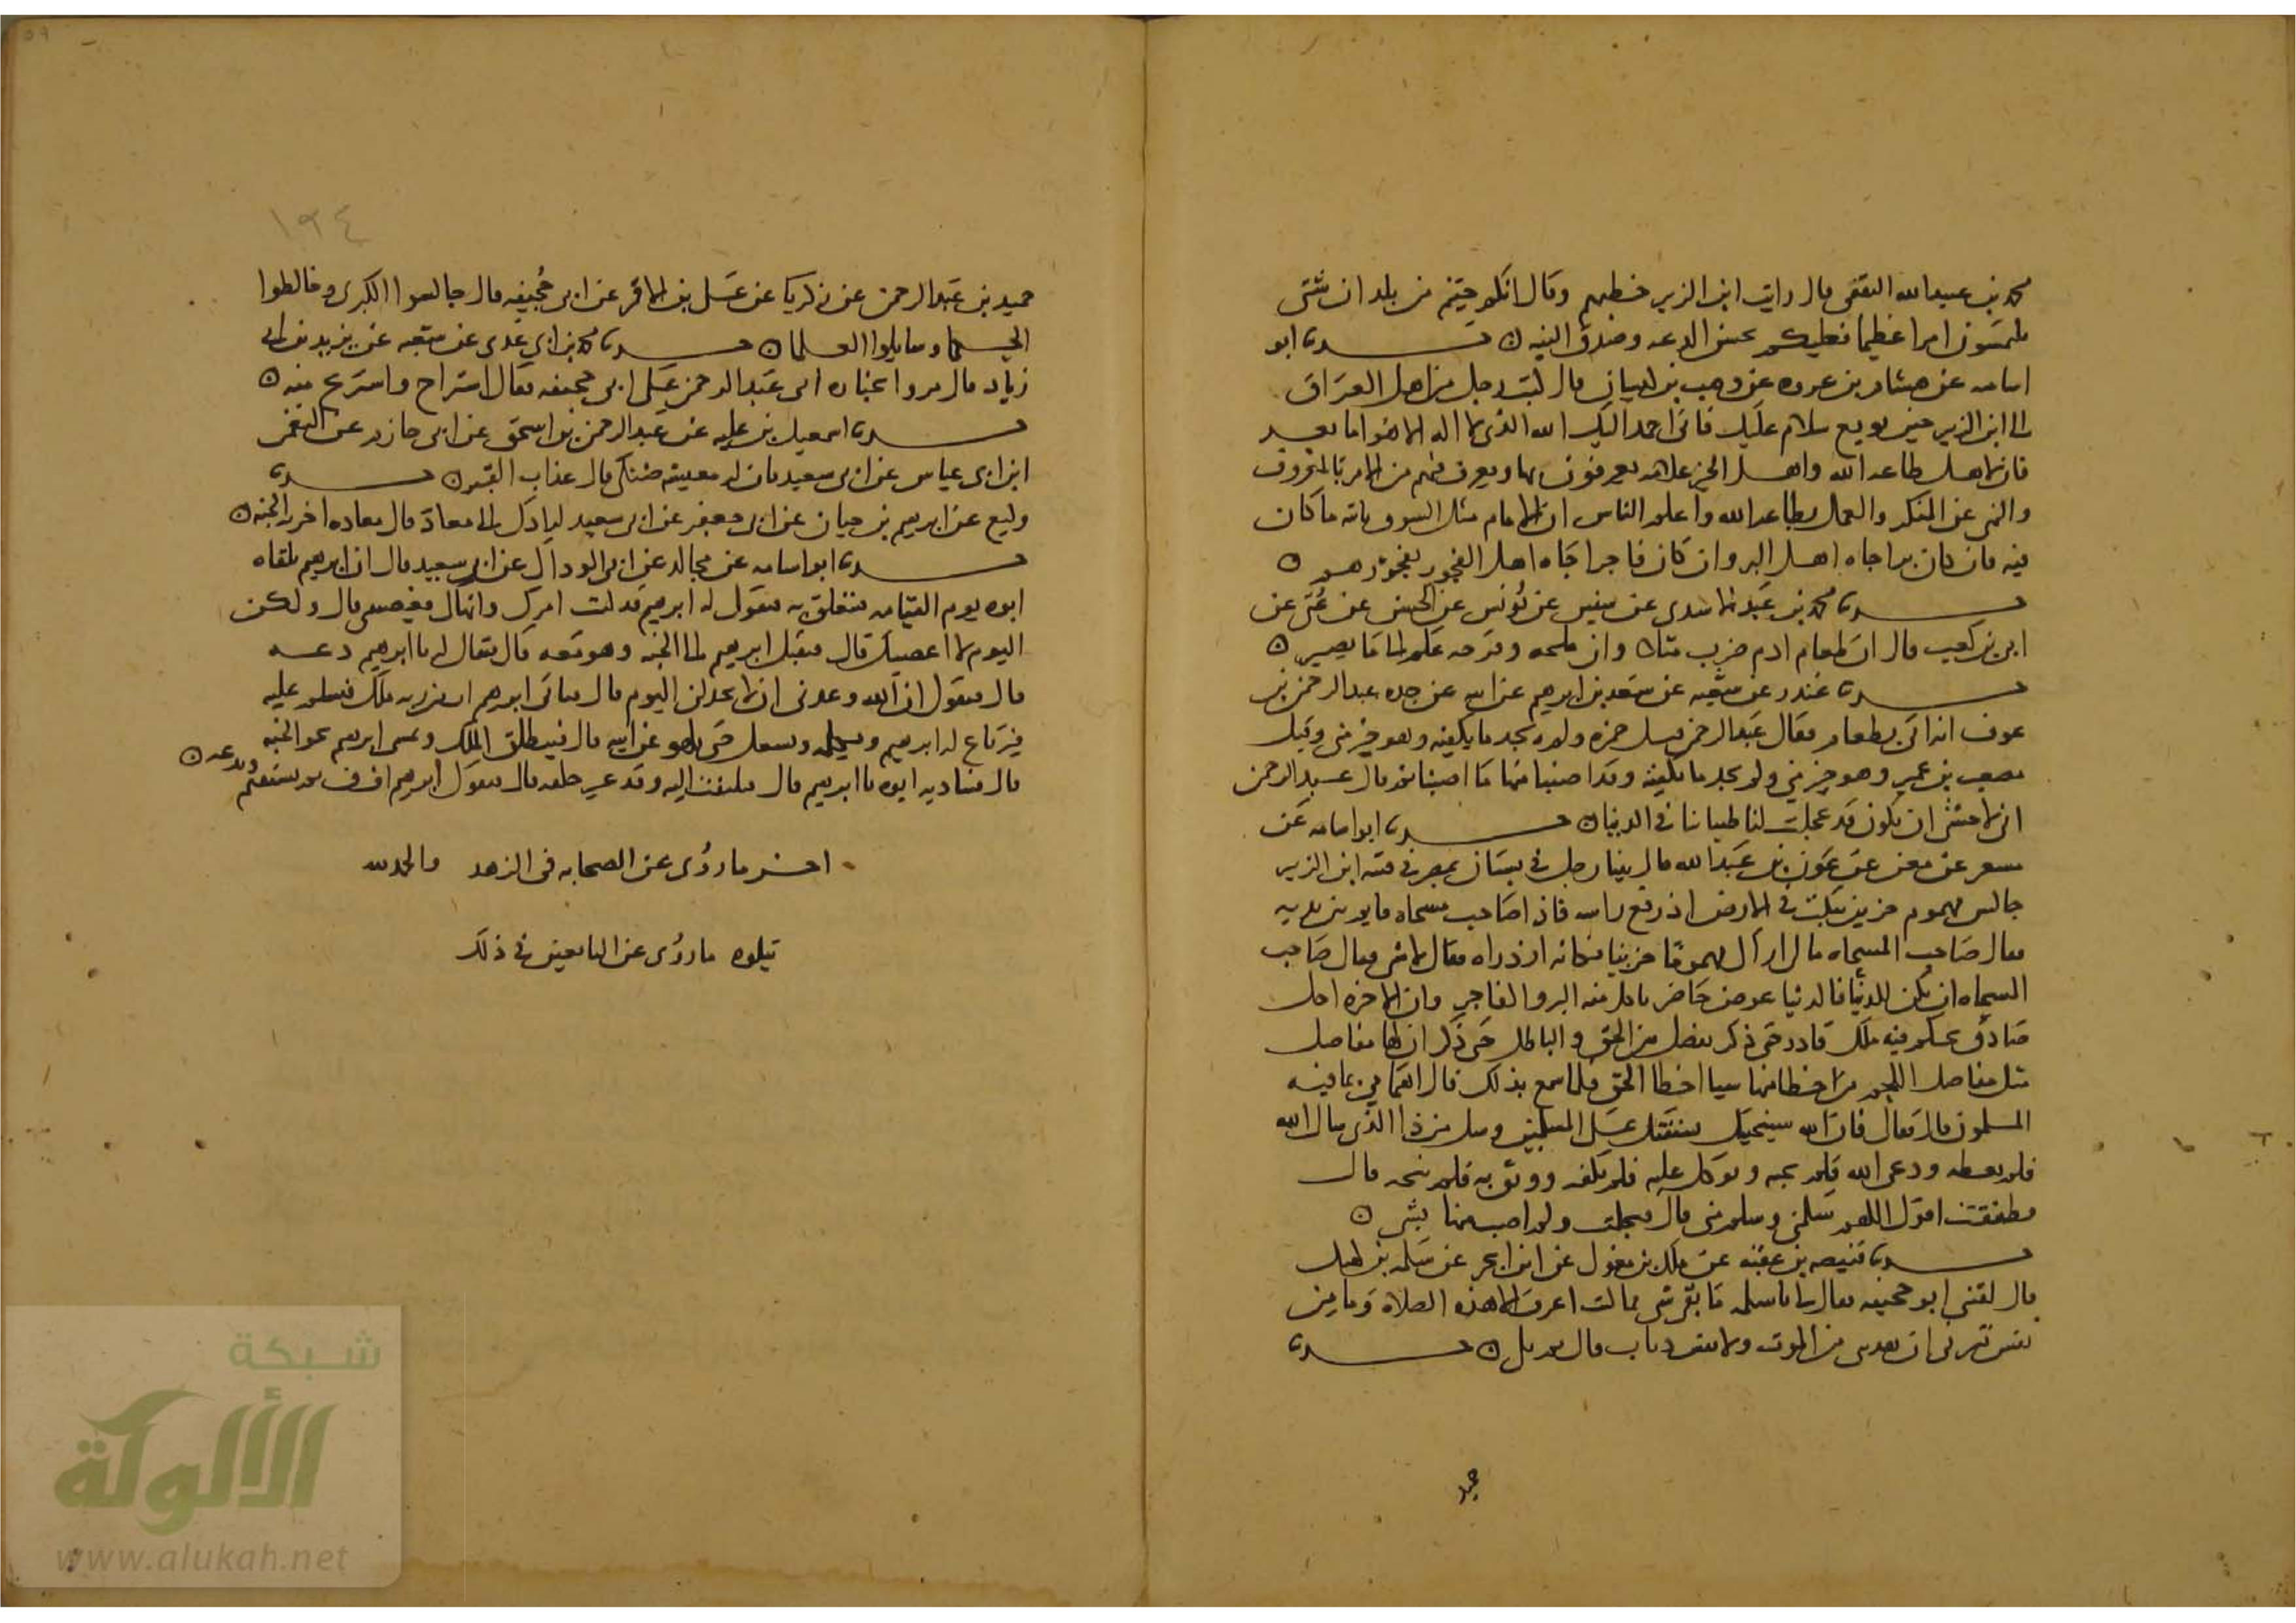 محمد بن عبيد الله الثقفي قال رايت ابن الزبير خطبهم وقال انكم جيتم من بلدان شتى
تلتمسون امرا عظيما فعليكم بحسن الدعه وصدق النيه ن حدثنا ابو
اسامه عن هشام بن عروه عن وهب بن كيسان قال كتب رجل من اهل العراق
الى ابن الزبير حين بويع سلام عليك فانى احمد اليك الله الذى لا اله الا هو اما بعد
فان لاهل طاعه الله واهل الخير علامه يعرفون بها ويعرف فيهم من الامر بالمعروف
والنهى عن المنكر والعمل بطاعه الله واعلم الناس ان الامام مثل السوق ياتيه ما كان
فيه فان كان برا جاه اهل البر وان كان فاجرا جاه اهل الفجور بفجورهم ن
حدثنا محمد بن عبد الاسدى عن سفين عن يونس عن الحسن عن عتى عن
ابى بن كعب قال ان طعام ادم ضرب مثلا وان ملحه وقزحه علم الى ما يصير ن
حدثنا غندر عن شعبه عن سعد بن ابرهيم عن ابيه عن جده عبد الرحمن بن
عوف انه اتى بطعام فقال عبد الرحمن قتل حمزه ولم نجد ما يكفنه وهو خير منى وقتل
مصعب بن عمير وهو خير منى ولم نجد ما نكفنه وقد اصبنا منها ما اصبنا ثم قال عبد الرحمن
انى لاخشى ان نكون قد عجلت لنا طيباتنا فى الدنيا ن حدثنا ابو اسامه عن
مسعر عن معن عن عون بن عبد الله قال بينا رجل فى بستان بمصر فى فتنه ابن الزبير
جالس مهموم حزين ينكت فى الارض اذ رفع راسه فاذا صاحب مسحاه قايم بين يديه
فقال صاحب المسحاه مالى اراك مهموما حزينا فكانه ازدراه فقال لا شى فقال صاحب
المسحاه ان يكن للدنيا فالدنيا عرض حاضر ياكل منه البر والفاجر وان الاخره اجل
صادق يحكم فيه ملك قادر حتى ذكر يفصل بين الحق والباطل حتى ذكر ان لها مفاصل
مثل مفاصل اللحم من اخطا منها شيا اخطا الحق فلما سمع بذلك قال اهتمامى بما فيه
المسلمون قال فقال فان الله سينجيك بشفقتك على المسلمين وسل من ذا الذى سال الله
فلم يعطه ودعى الله فلم يجبه وتوكل عليه فلم يكفه ووثق به فلم ينجه قال
فطفقت اقول اللهم سلمنى وسلم منى قال فتجلت ولم اصب منها بشى ن
حدثنا قبيصه بن عقبه عن ملك بن مغول عن ابن ابجر عن سلمه بن كهيل
قال لقينى ابو جحيفه فقال لى يا سلمه ما بقى شى مما كنت اعرف الا هذه الصلاه وما من
نفس تسرنى ان تفدينى من الموت ولا نفس ذباب قال ثم بكى ن حدثنا
حميد
١٩٤
حميد بن عبد الرحمن عن زكريا عن على بن الاقمر عن ابى جحيفه قال جالسوا الكبرى وخالطوا
الحكما وسايلوا العلما ن حدثنا محمد بن ابي عدى عن شعبه عن يزيد بن ابى
زياد قال مروا بجنازه ابى عبد الرحمن على ابى جحيفه فقال استراح واستريح منه ن
حدثنا اسمعيل بن عليه عن عبد الرحمن بن اسحق عن ابى حازم عن النعمن
ابن ابى عياش عن ابى سعيد فان له معيشه ضنكا قال عذاب القبر ن حدثنا
وكيع عن ابرهيم بن حيان عن ابى جعفر عن ابى سعيد لرادك الى معاد قال معاده اخرته الجنه ن
حدثنا ابو اسامه عن مجالد عن ابى الوداك عن ابى سعيد قال ان ابرهيم يلقاه
ابوه يوم القيامه فيتعلق به فيقول له ابرهيم قد كنت امرك وانهاك فعصيتنى قال ولكن
اليوم لا اعصيك قال فيقبل ابرهيم الى الجنه وهو معه قال فيقال له يا ابرهيم دعه
قال فيقول ان الله وعدنى ان لا يخذلنى اليوم قال فياتى ابرهيم ات من ربه ملك فيسلم عليه
فيرتاع له ابرهيم ويكلمه ويشغل حتى يلهو عن ابيه قال فينطلق الملك ويمشى ابرهيم نحو الجنه ويدعه ن
قال فيناديه ابوه يا ابرهيم قال فيلتفت اليه وقد غير خلقه قال فيقول ابرهيم اف اف ثم يستقيم
اخر ما روى عن الصحابه فى الزهد والحمد لله
يتلوه ما روى عن التابعين فى ذلك
شبكة
الألوكة
www.alukah.net